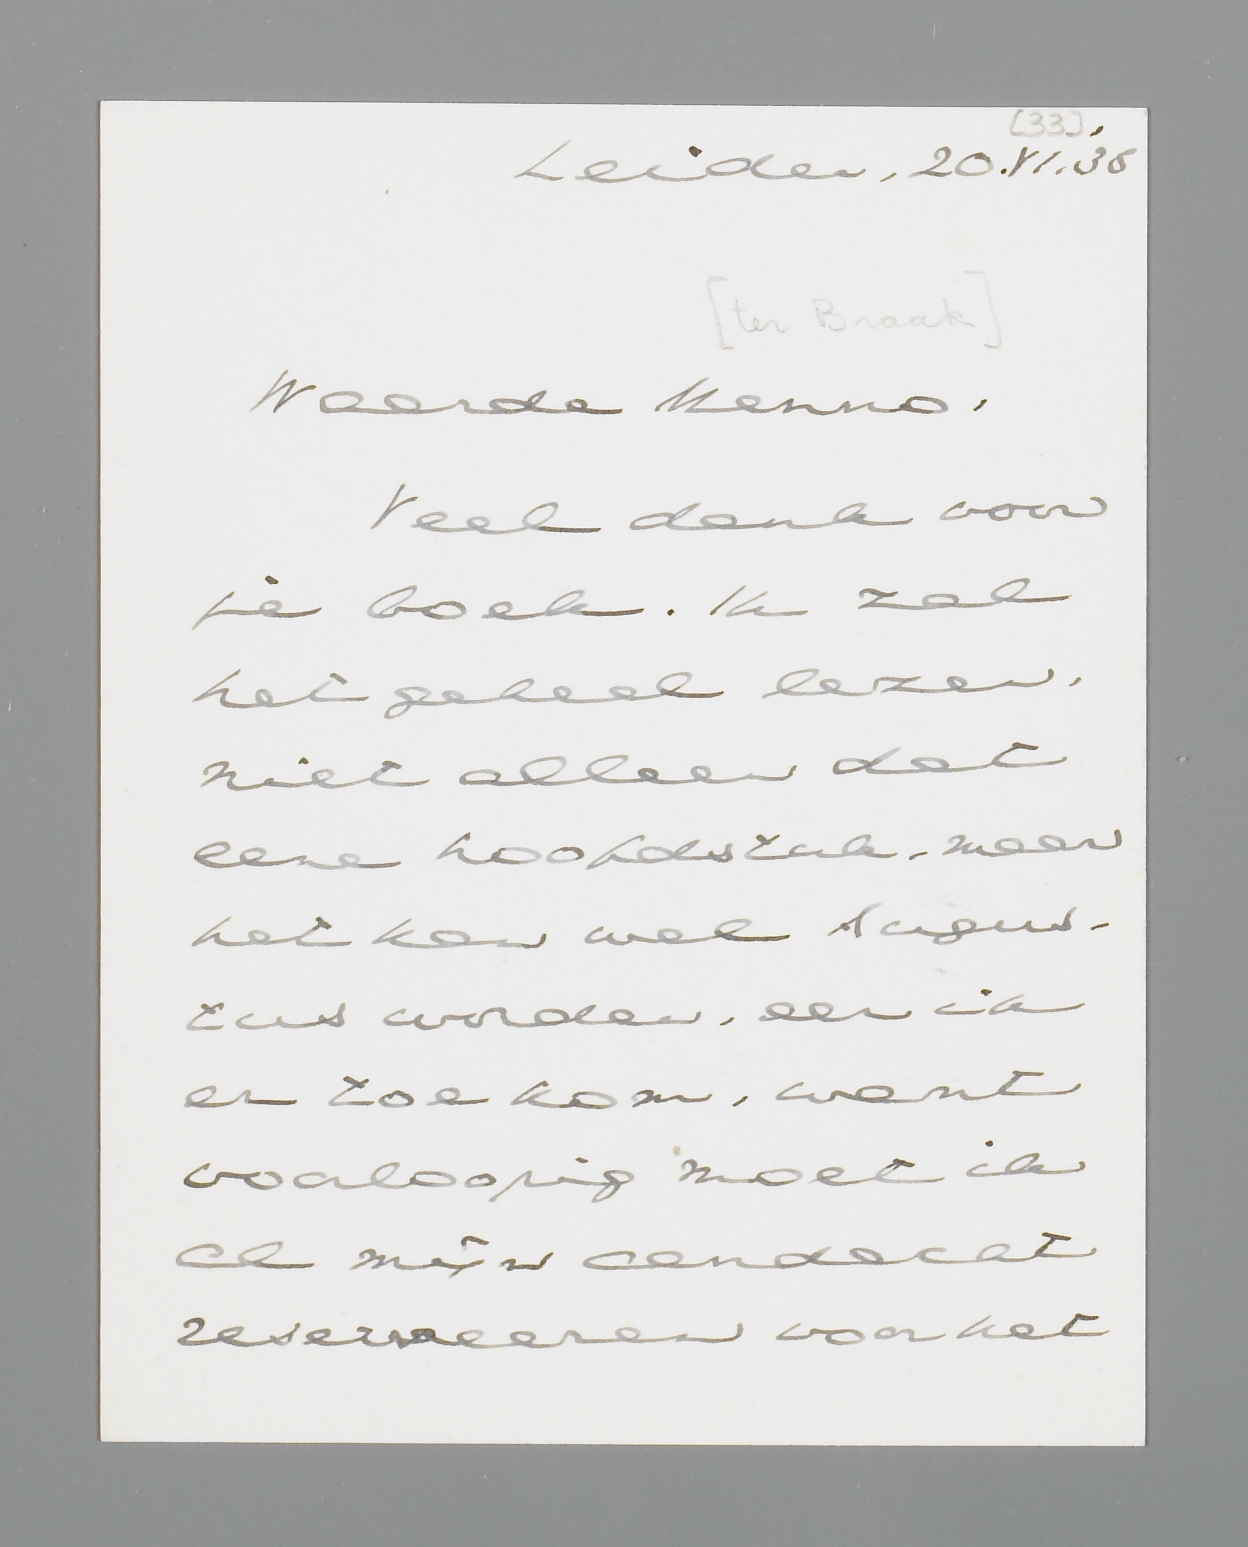 [33]
Leiden, 20.VI.38
[ter Braak]
Waarde Menno,
Veel dank voor
je boek. Ik zal
het geheel lezen,
niet alleen dat
eene hoofdstuk, maar
het kan wel Augus-
tus worden, eer ik
er toe kom, want
voorloopig moet ik
al mijn aandacht
reserveeren voor het